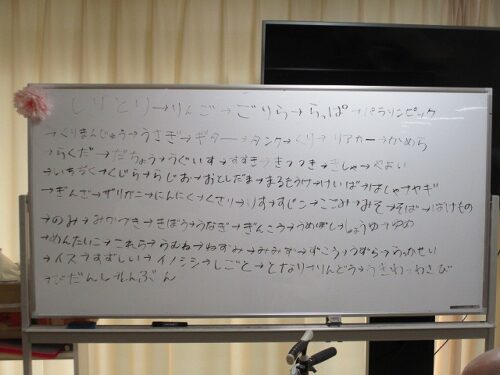 しりとり→りんご→ごりら→らっぱ→パラリンピック
→くりまんじゅう→うさぎ→ギター→タンク→くり→リアカー→かめら
→らくだ→だちょう→うぐいす→すすき→きつつき→きしゃ→やよい
→いちぢく→くじら→らじお→おとしだま→まるもうけ→けいば→ばしゃ→ヤギ
→ぎんざ→ザリガニ→にんにく→くさり→りす→すじこ→ごみ→みそ→そば→ばけもの
→のみ→みかづき→きぼう→うなぎ→ぎんこう→うめぼし→しょうゆ→ゆめ
→めんたいこ→これら→らむね→ねずみ→みみず→ずこう→うずら→らっかせい
→イス→すずしい→イノシシ→しごと→となり→りんどう→うきわ→わさび
→びだんし→しんぶん